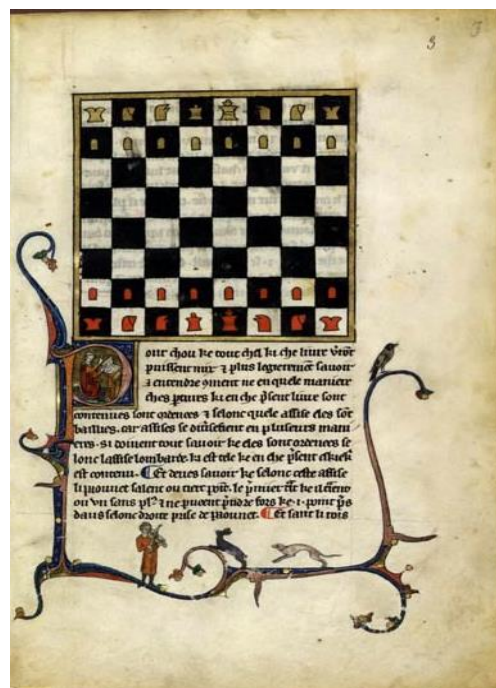 3
our chou ke tout chil ki che liure vront
puissent mix ⁊ plus legierement sauoir
⁊ entendre 9ment ne en quele maniere
ches ptures ki en che psent liure sont
contenues sont ordenees ⁊ selonc quele assise eles sōt
baillies. car assises se diuersefient en pluseurs mani
eres. si doiuent tout sauoir ke eles sont ordenees se
lonc lassise lombarde. ki est tele ke en che psent eskiek
est contenu. Et deues sauoir ke selonc ceste assise
li pouuet salent ou tierc point. le pmier
ou vn sans pl9 ⁊ ne pueent prendre fors ke .i. point
dans selonc droite prise de paounet. Et saut li rois